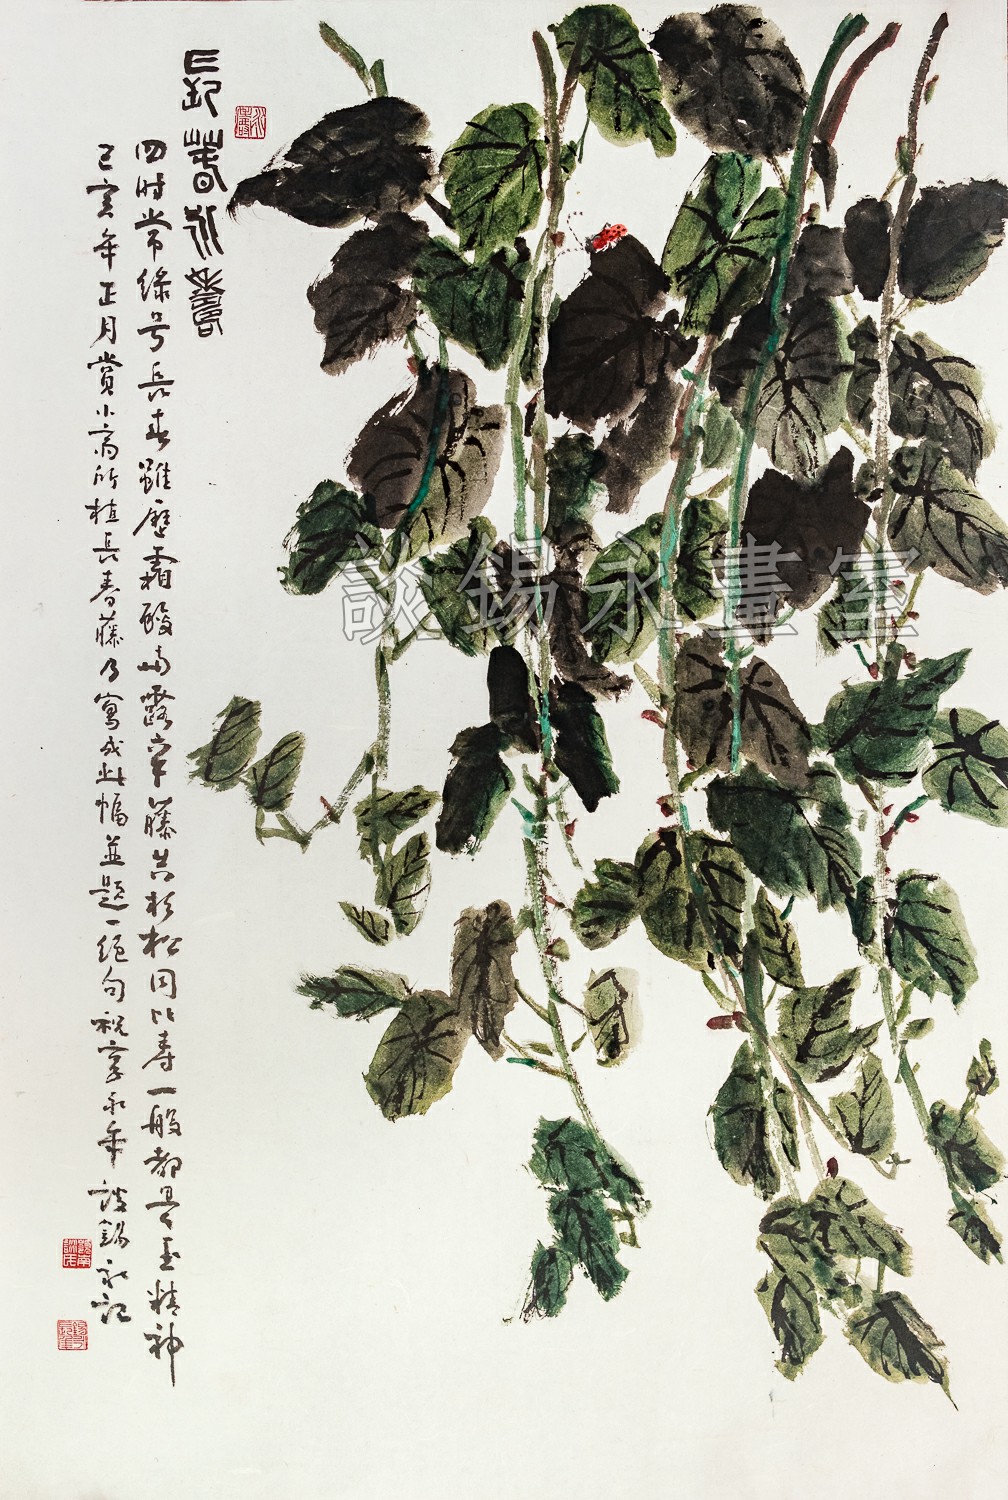 長春永壽
四时常綠号長春雖歷霜酸與露辛藤共杉松同比壽一般都是玉精神
己亥年正月賞小高所植長春藤乃寫成此幅並題一絕句祝享永年 談錫永記
談錫永畫室